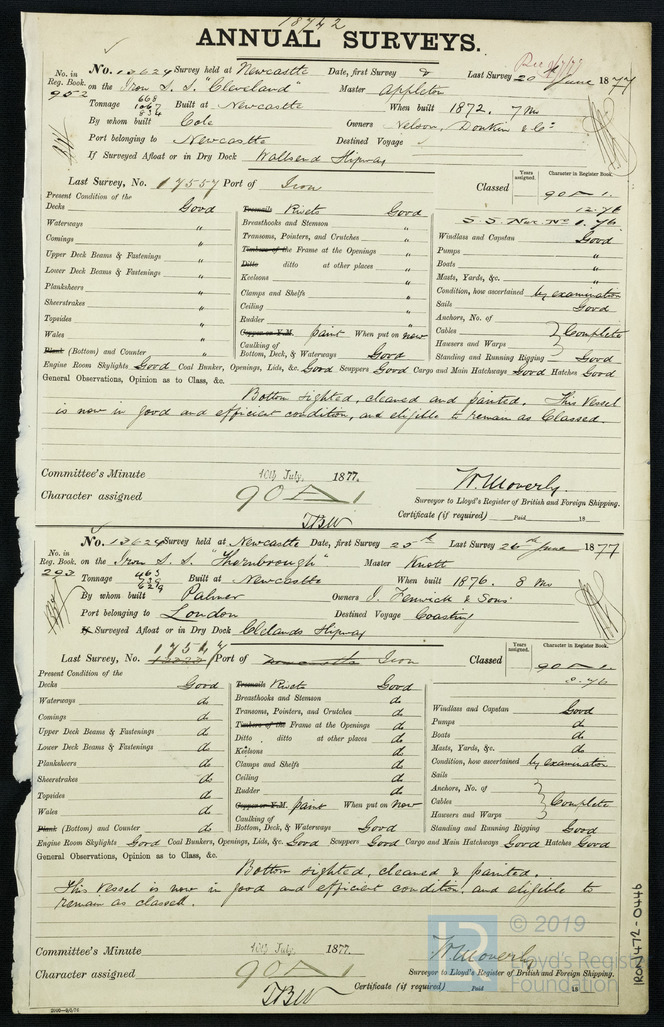 18742
ANNUAL SURVEYS.
No. 13629 Survey held at Newcastle Date, first Survey & Last Survey 20th June 1877
No. in Reg. Book. 952 on the Iron S. S. "Cleveland" Master Appleton
Tonnage 668 1067 834 Built at Newcastle When built 1872. 7 Mo
By whom built Cole Owners Nelson, Donkin & Co:
Port belonging to Newcastle Destined Voyage
If Surveyed Afloat or in Dry Dock Wallsend Slipway
Last Survey, No. 17557 Port of Iron Classed Years assigned. Character in Register Book. 90 A 1.
12.76
S. S. Nwc. No 1. 76
Present Condition of the
Decks Good Treenails Rivets Good Windlass and Capstan Good
Waterways " Breasthooks and Stemson " Pumps "
Comings " Transoms, Pointers, and Crutches " Boats "
Upper Deck Beams & Fastenings " Timbers of the Frame at the Openings " Masts, Yards, &c. "
Lower Deck Beams & Fastenings " Ditto ditto at other places " Condition, how ascertained by examination
Planksheers " Keelsons " Sails Good
Sheerstrakes " Clamps and Shelfs " Anchors, No. of
Topsides " Ceiling " Cables } Complete
Wales " Rudder " Hawsers and Warps
Plank (Bottom) and Counter " Copper or Y.M. paint When put on now Standing and Running Rigging Good
Caulking of Bottom, Deck, & Waterways Good
Engine Room Skylights Good Coal Bunker, Openings, Lids, &c. Good Scuppers Good Cargo and Main Hatchways Good Hatches Good
General Observations, Opinion as to Class, &c.
Bottom sighted, cleaned and painted. This vessel
is now in good and efficient condition, and eligible to remain as Classed.
Committee's Minute 10th July, 1877. W. Moverly.
Character assigned 90 A 1 Surveyor to Lloyd's Register of British and Foreign Shipping.
TBW Certificate (if required) Paid 18
No. 13629 Survey held at Newcastle Date, first Survey 25th Last Survey 26th June 1877
No. in Reg. Book. 293 on the Iron S. S. "Thornbrough" Master Knott
Tonnage 463 Built at Newcastle When built 1876. 8 Mo
By whom built Palmer Owners J. Fenwick & Sons
Port belonging to London Destined Voyage Coasting
If Surveyed Afloat or in Dry Dock Clelands Slipway
Last Survey, No. Port of Iron Classed Years assigned. Character in Register Book. 90 A 1.
8.76
Present Condition of the
Decks Good Treenails Rivets Good Windlass and Capstan Good
Waterways do Breasthooks and Stemson do Pumps do
Comings do Transoms, Pointers, and Crutches do Boats do
Upper Deck Beams & Fastenings do Timbers of the Frame at the Openings do Masts, Yards, &c. do
Lower Deck Beams & Fastenings do Ditto ditto at other places do Condition, how ascertained by examination
Planksheers do Keelsons do Sails
Sheerstrakes do Clamps and Shelfs do Anchors, No. of
Topsides do Ceiling do Cables } Complete
Wales do Rudder do Hawsers and Warps
Plank (Bottom) and Counter do Copper or Y.M. paint When put on now Standing and Running Rigging Good
Caulking of Bottom, Deck, & Waterways Good
Engine Room Skylights Good Coal Bunkers, Openings, Lids, &c. Good Scuppers Good Cargo and Main Hatchways Good Hatches Good
General Observations, Opinion as to Class, &c.
Bottom sighted, cleaned & painted.
This vessel is now in good and efficient condition, and eligible to
remain as classed.
Committee's Minute 10th July, 1877. W. Moverly
Character assigned 90 A 1 Surveyor to Lloyd's Register of British and Foreign Shipping.
TBW Certificate (if required) Paid 18
© 2019
Lloyd's Register
Foundation
IRON472-0446